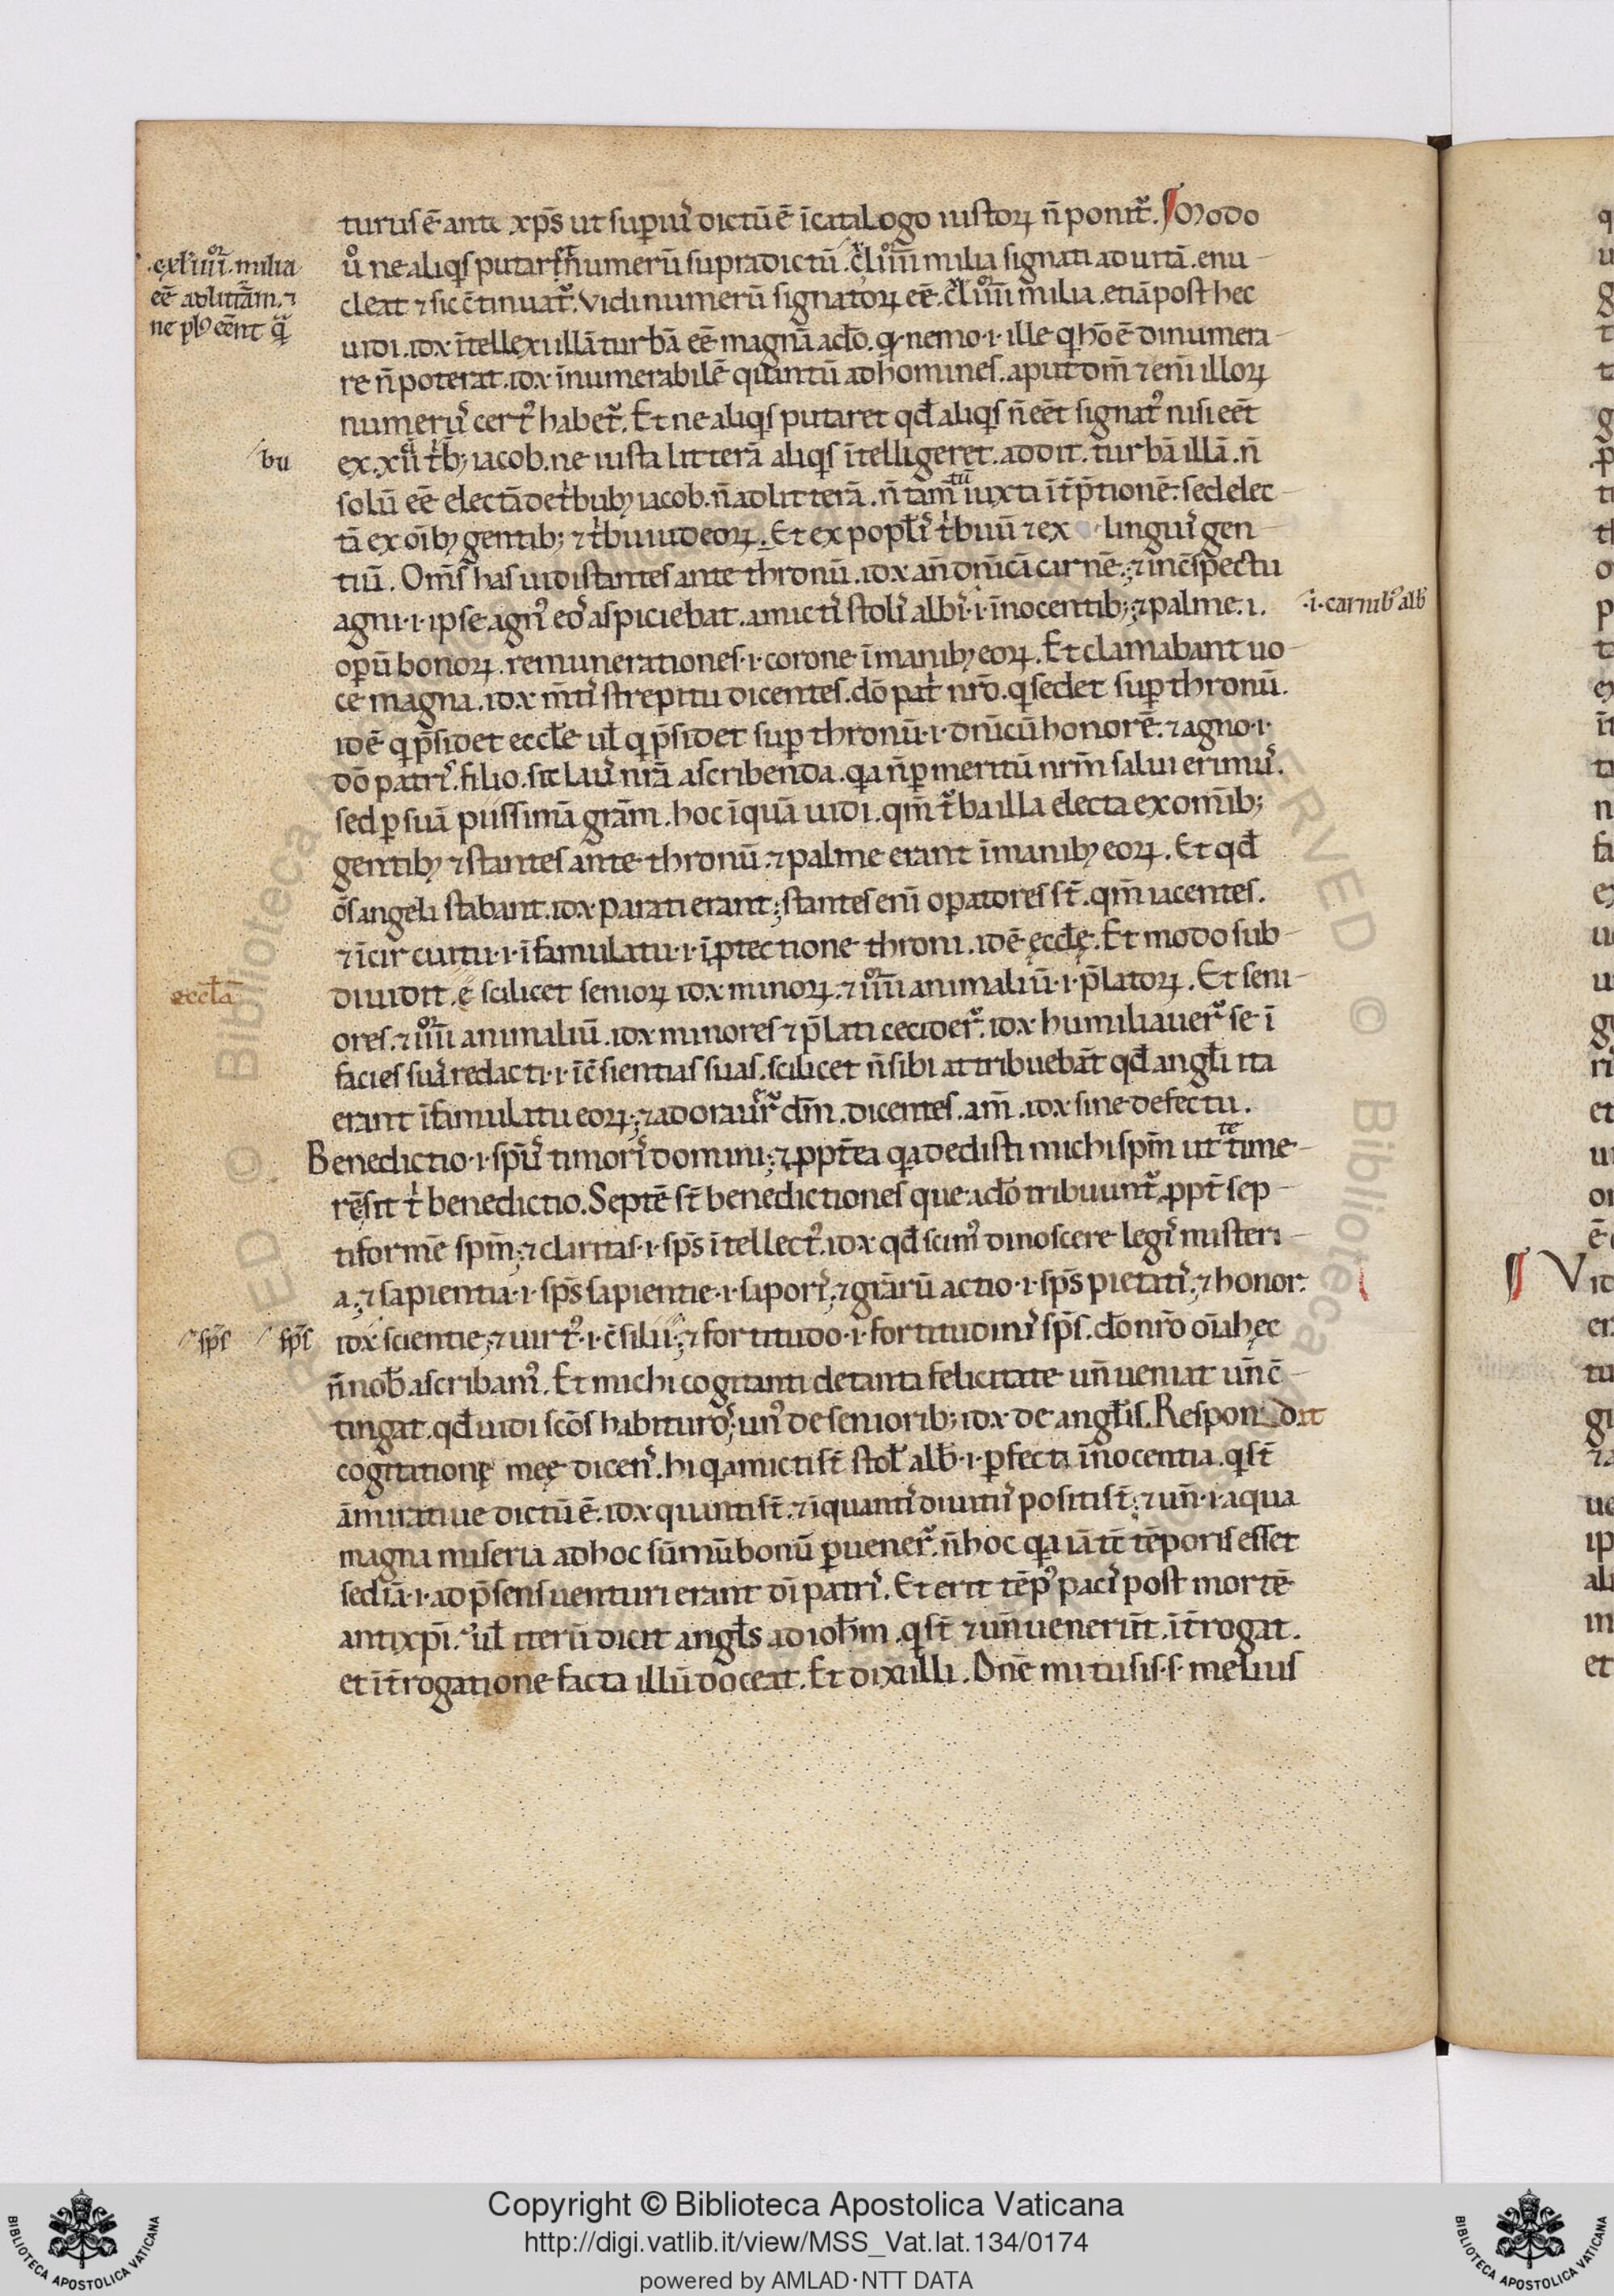 turus ē ante xp̄s ut suꝑiꝰ dictū ē ī catalogo iustoꝝ n̄ ponit᷑. ¶ Modo
u̾o ne aliqͥs putar& numerū supradictū .cxliiii milia signati ad uitā. enu-
cleat ⁊ sic ↄ̄tinuat᷑. Vidi numerū signatoꝝ eē .cxliiii milia. etiā post hec
uidi .idx ītellexi illā turbā eē magnā adeo. qꝫ nemo .i. ille qͥ hō ē dinumera-
re n̄ poterat. idx īnumerabilē quantū ad homines. aput dm̄ ⁊ eni illoꝝ
numerꝰ certꝰ habet᷑. Et ne aliqͥs putaret qđ aliqͥs n̄ eēt signatꝰ nisi eēt
ex .xii. tͥbꝫ iacob. ne iusta litterā aliqͥs ītelligeret. addit. turbā illā. n̄
solū eē electā de tͥbubꝫ iacob. n̄ ad litterā. n̄ tam̄ iuxta īt̄p̄tionē: sed elec-
tā ex oībꝫ gentibꝫ ⁊ tͥbu iudeoꝝ. Et ex popłis tͥbuū ⁊ ex linguis gen-
tiū. Om̄s has uidi stantes ante thronū. idx an̄ dn̄icā carnē. ⁊ in ↄ̄spectu
agni .i. ipse agnꝰ eos aspiciebat. amicti stolis albis .i. īnocentibꝫ ⁊ palme .i.
oꝑū bonoꝝ. remunerationes .i. corone ī manibꝫ eoꝝ. Et clamabant uo-
ce magna. idx mt̄is strepitu dicentes. dō patͥ nr̄o. qͥ sedet suꝑ thronū.
idē qͥ p̄sidet eccłe uł qͥ p̄sidet suꝑ thronū .i. dn̄icū honorē. ⁊ agno .i.
dō patris filio. sit laus nr̄a ascribenda. qͣ n̄ ꝑ meritū nrm̄ salui erimus.
sed ꝑ suā piissimā grām. hoc īquā uidi. qm̄ t᷑ba illa electa ex omībꝫ
gentibꝫ ⁊ stantes ante thronū. ⁊ palme erant ī manibꝫ eoꝝ. Et qđ
ōs angeli stabant. idx parati erant; stantes eni oꝑatores st̄. qm̄ iacentes.
⁊ ī circuitu .i. ī famulatu .i. ī ꝓtectione throni. idē ęccłę. Et modo sub-
diuidit. ē scilicet senioꝝ idx minoꝝ. ⁊ iiii animaliū .i. p̄latoꝝ. Et seni-
ores. ⁊ iiii animaliū. idx minores ⁊ p̄lati cecider᷑. idx humiliauer᷑ se ī
facies suas redacti .i. ī ↄ̄sientias suas. scilicet n̄ sibi attribuebāt qđ angłi ita
erant ī famulatu eoꝝ; ⁊ adorauer᷑ dm̄. dicentes. am̄. idx sine defectu.
Benedictio .i. spūs timoris domini; ⁊ ꝓpt̄ea qͣ dedisti michi spm̄ ut te time-
rē sit tͥ benedictio. Septē st̄ benedictiones que adeo tribuunt᷑ ꝓpt̄ sep-
tiformē spm̄; ⁊ claritas .i. sps̄ ītellectꝰ. idx qđ scimꝰ dinoscere legis misteri-
a; ⁊ sapientia .i. sps̄ sapientie .i. saporis; ⁊ grārū actio .i. sps̄ pietatis; ⁊ honor.
idx scientie; ⁊ uirtꝰ .i. ↄ̄silii; ⁊ fortitudo .i. fortitudinis sps̄. dō nr̄o oīa hęc
n̄ nob̄ ascribamꝰ. Et michi cogitanti de tanta felicitate un̄ ueniat un̄ ↄ̄-
tingat. qđ uidi scōs habituros; unꝰ de senioribꝫ idx de angłis. Respondit
cogitationę męę dicens. hi qͥ amicti st̄ stoł alb̄ .i. ꝑfecta īnocentia. qͥ st̄
āmiratiue dictū ē. idx quanti st̄. ⁊ ī quantis diuitiis positi st̄; ⁊ un̄ .i. a qua
magna miseria ad hoc sūmū bonū ꝑuener᷑. n̄ hoc qͣ iā tē tēporis esset
sed iā .i. ad p̄sens uenturi erant dī patris. Et erit tēpꝰ pacis post mortē
antixpi. uł iterū dicit angłs ad iohm̄. qͥ st̄ ⁊ un̄ uenerīt. īt̄rogat.
et īt̄rogatione facta illū doceat. Et dixi illi. Dn̄e mi tu sis .s. melius
.cxliiii. milia
eē ad litt̄am. ⁊
ne plꝰ eēnt qͣ
bu
.i. carnibꝰ alb̄
eccła
sps̄ sps̄
Copyright © Biblioteca Apostolica Vaticana
http://digi.vatlib.it/view/MSS_Vat.lat.134/0174
powered by AMLAD·NTT DATA
BIBLIOTECA APOSTOLICA VATICANA
BIBLIOTECA APOSTOLICA VATICANA